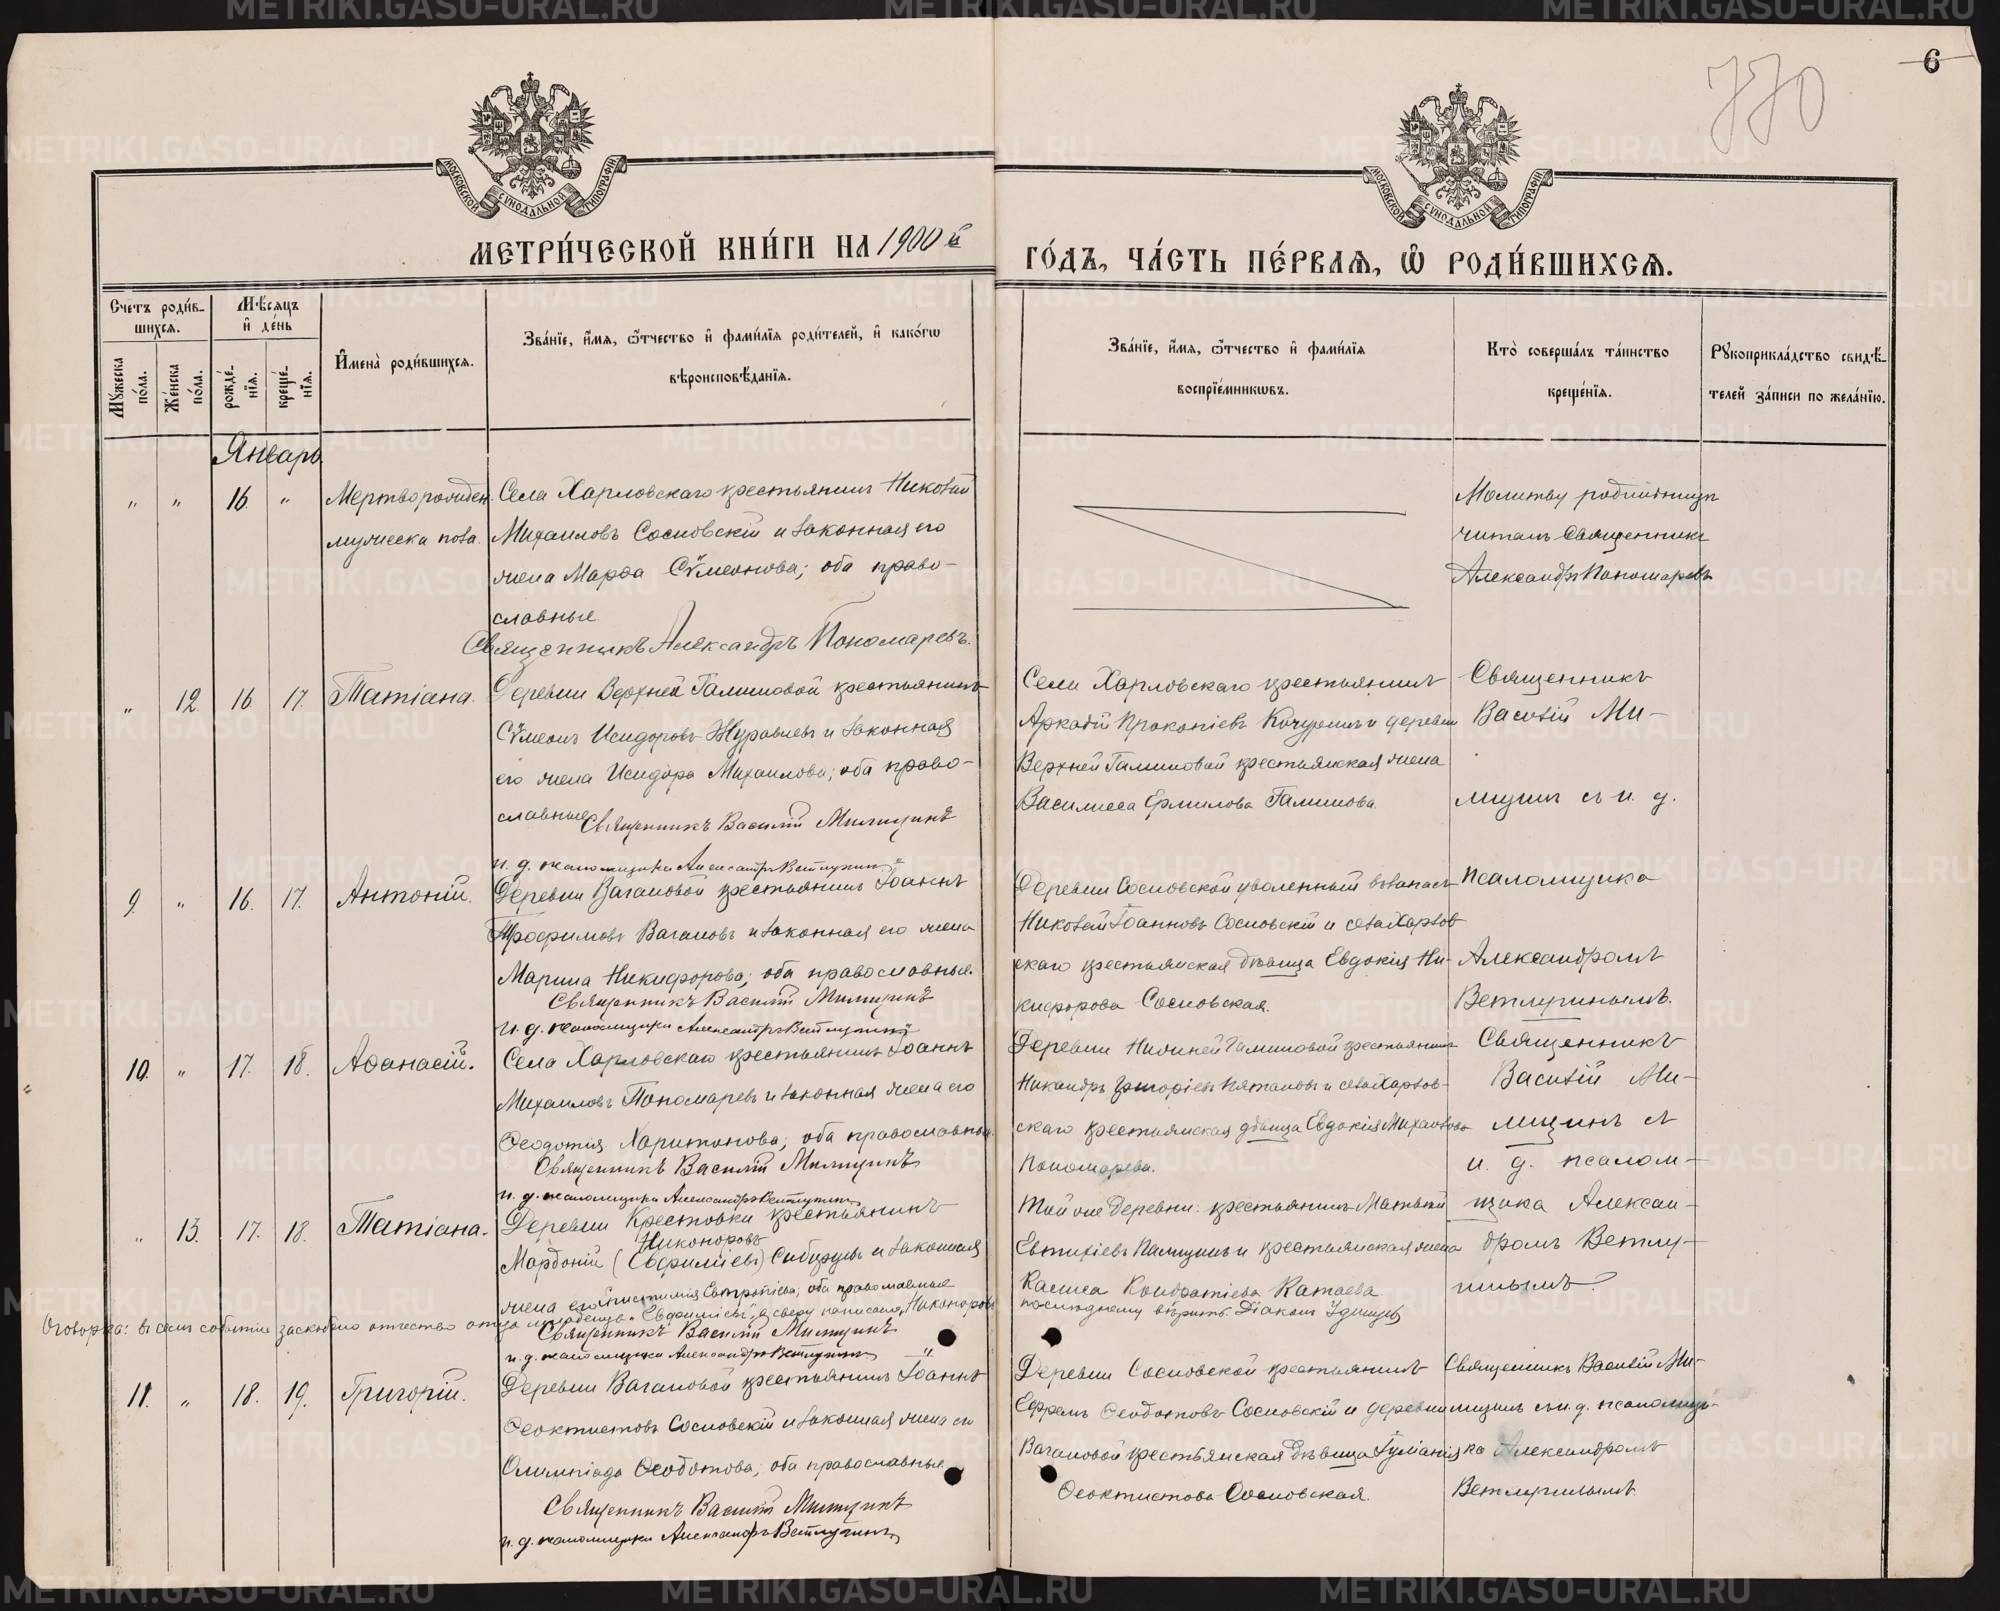 6
770
МОСКОВСКОЙ СѴНОДАЛЬНОЙ ТИПОГРАФІИ
МОСКОВСКОЙ СѴНОДАЛЬНОЙ ТИПОГРАФІИ
МЕТРИ́ЧЕСКОЙ КНИ́ГИ НА 1900 й
ГО́ДЪ, ЧА́СТЬ ПЕ́РВАѦ, Ѡ҆ РОДИ́ВШИХСѦ.
Счетъ роди́в-
шихсѧ.
Мꙋ́жеска по́ла.
Же́нска по́ла.
Мѣ́сѧцъ и҆ де́нь
рожде́-нїѧ.
креще́-нїѧ.
И҆мена̀ роди́вшихсѧ.
Зва́нїе, и҆́мѧ, ѻ҆́тчество и҆ фами́лїѧ роди́телей, и҆ како́гѡ
вѣроисповѣ́данїѧ.
Зва́нїе, и҆́мѧ, ѻ҆́тчество и҆ фами́лїѧ
воспрїе́мникѡвъ.
Кто̀ соверша́лъ та́инство
креще́нїѧ.
Рꙋкоприкла́дство свидѣ́-
телей за́писи по жела́нїю.
Январь
" " 16. " Мертворожден. Села Харловскаго крестьянинъ Николай
мужеска пола. Михаиловъ Сосновскій и законная его
жена Марѳа Сѵмеонова; оба право-
славные
Священникъ Александръ Пономаревъ.
Молитву родильницѣ
читалъ Священникъ
Александръ Пономаревъ
" 12. 16. 17. Татіана. Деревни Верхней Галишовой крестьянинъ
Сѵмеонъ Исидоровъ Журавлевъ и законная
его жена Исидора Михаилова; оба право-
славные Священникъ Василій Милицинъ
и. д. псаломщика Александръ Ветлугинъ
Села Харловскаго крестьянинъ
Аркадій Прокопіевъ Кочуринъ и деревни
Верхней Галишовой крестьянская жена
Василиса Ермилова Галишова.
Священникъ
Василій Ми-
лицинъ съ и. д.
9. " 16. 17. Антоній. Деревни Вагановой крестьянинъ Іоаннъ
Трофимовъ Вагановъ и законная его жена
Марина Никифорова; оба православные.
Священникъ Василій Милицинъ
и. д. псаломщика Александръ Ветлугинъ
Деревни Сосновской уволенный въ запасъ
Николай Іоанновъ Сосновскій и села Харлов-
скаго крестьянская дѣвица Евдокія Ни-
кифорова Сосновская.
псаломщика
Александромъ
Ветлугинымъ.
10. " 17. 18. Аѳанасій. Села Харловскаго крестьянинъ Іоаннъ
Михаиловъ Пономаревъ и законная жена его
Ѳеодотія Харитонова; оба православные.
Священникъ Василій Милицинъ
и. д. псаломщика Александръ Ветлугинъ
Деревни Нижней Галишовой крестьянинъ
Никандръ Григоріевъ Пятановъ и села Харлов-
скаго крестьянская дѣвица Евдокія Михаилова
Пономарева.
Священникъ
Василій Ми-
лицинъ съ
и. д. псалом-
" 13. 17. 18. Татіана. Деревни Крестовки крестьянинъ
Никоноровъ
Мардоній (Евфиміевъ) Сибирцевъ и законная
жена его Евтропіева; оба православные
Оговорка: въ семъ событіи заскоблено отчество отца младенца "Евфиміевъ", а сверху написано "Никоноровъ"
Священникъ Василій Милицинъ
и. д. псаломщика Александръ Ветлугинъ
Той же деревни крестьянинъ Матвѣй
Евтихіевъ и крестьянская жена
Кондратіева Катаева
последнему вѣрить. Діаконъ
щика Алексан-
дромъ Ветлу-
гинымъ.
11. " 18. 19. Григорій. Деревни Вагановой крестьянинъ Іоаннъ
Ѳеоктистовъ Сосновскій и законная жена его
Олимпіада Ѳеодотова; оба православные.
Священникъ Василій Милицинъ
и. д. псаломщика Александръ Ветлугинъ
Деревни Сосновской крестьянинъ
Ефремъ Ѳеодотовъ Сосновскій и деревни
Вагановой крестьянская дѣвица Іуліанія
Ѳеоктистова Сосновская.
Священникъ Василій Ми-
лицинъ съ и. д. псаломщи-
ка Александромъ
Ветлугинымъ.